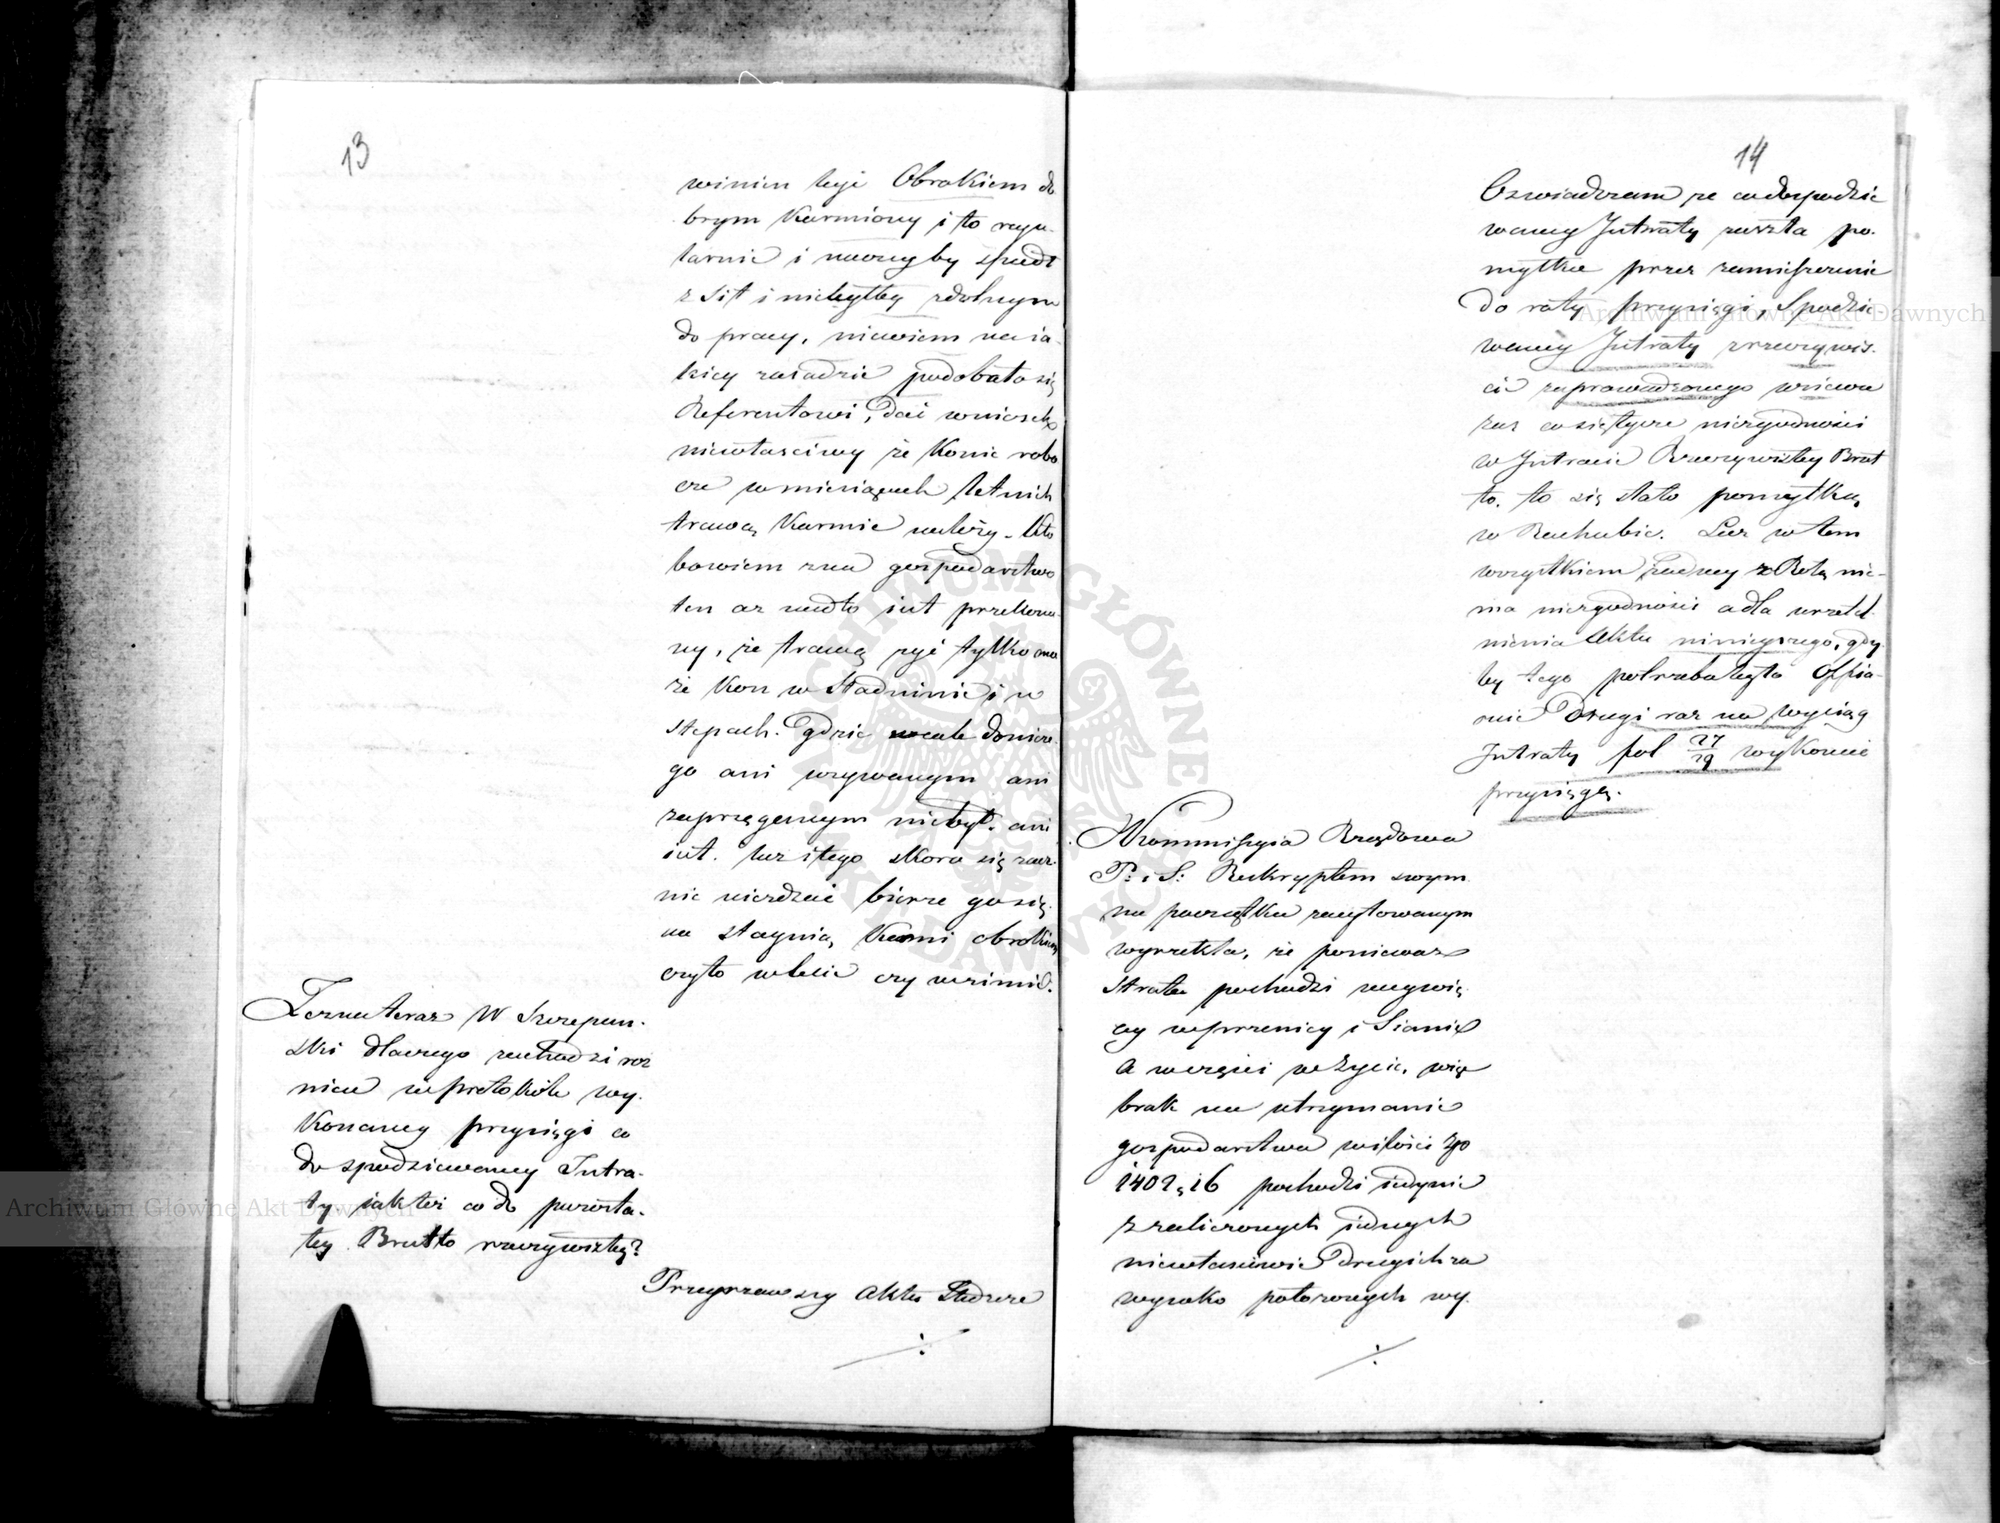 13
winien być Obrokiem do
brym karmiony i to regu-
larnie i inaczyby spadł
z sił i niebyłby zdolnym
do pracy, niewiem na ia-
kiey zasadzie podobało się
Referentowi, dać wniosek
niewłaściwy że konie robo
cze w miesiącach letnich
trawą karmić należy. Kto
bowiem zna gospodarstwo
ten aż nadto iest przekona
ny, że trawą żyć tylko mo
że koń w stadninie i w
stepach. gdzie wcale do nicze-
go ani używanym ani
zaprzęganym niebył. ani
iest. lecz i tego skoro się zacz-
nie uieżdżać bierze go się
na staynią karmi obrokiem
czyto w lecie czy w zimie.
Zezna teraz W Szczepan-
ski dlaczego zachodzi róż
nica w protokóle wy-
konaney przysięgi co
do spodziewaney Intra-
ty, iakteż co do pozosta-
łey Brutto rzeczywistey?
Przeyrzawszy Akta Studrze
14
Oświadczam że co do spodzie
waney Intraty zaszła po-
myłka przez zamieszczenie
do roty przysięgi, Spodzie
waney Intraty zrzeczywis-
cie zaprowadzonego wsiewu
zaś co się tycze niezgodności
w Intracie Rzeczywistey Brut
to. to się stało pomyłką
w Rachubie. Lecz w tem
wszystkiem żadney z Rotą nie-
ma niezgodności a dla uzupeł-
nienia Aktu ninieyszego, gdy
by tego potrzeba była Offia-
ruie Drugi raz na wyciąg
Intraty fol 27/29 wykonać
przysięgę.
Kommissyia Rządowa
P: i S: Reskryptem swym
na początku zacytowanym
wyrzekła, że ponieważ
strata pochodzi naywię
cey w pszenicy i Sianie
a w części w życie, więc
brak na utrzymanie
gospodarstwa w ilości zp
1402,16 pochodzi iedynie
z zaliczonych iednych
niewłaściwie Drugich za
wysoko położonych wy-
Archiwum Główne Akt Dawnych
Archiwum Główne Akt Dawnych
ARCHIWUM GŁÓWNE AKT DAWNYCH